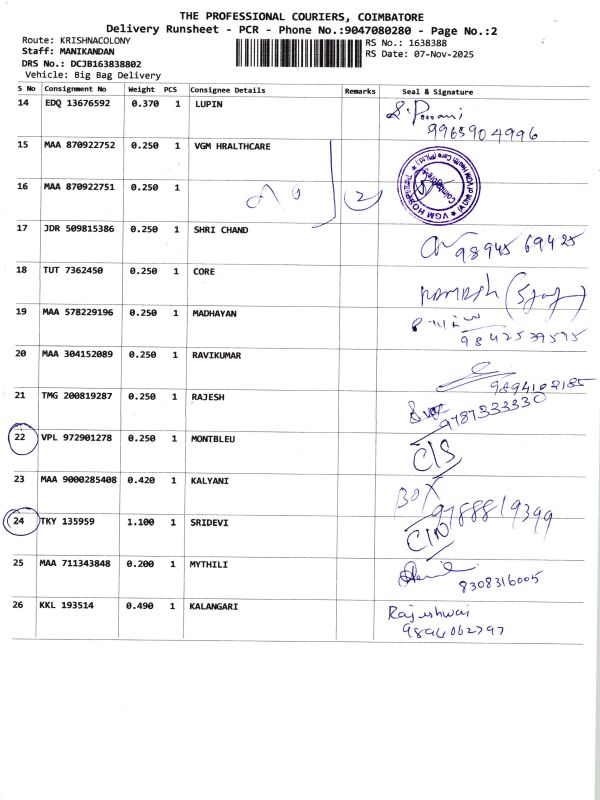 THE PROFESSIONAL COURIERS, COIMBATORE
Delivery Runsheet - PCR - Phone No.:9047080280 - Page No.:2
Route: KRISHNACOLONY
RS No.: 1638388
Staff: MANIKANDAN
RS Date: 07-Nov-2025
DRS No.: DCJB163838802
Vehicle: Big Bag Delivery
S No Consignment No Weight PCS Consignee Details Remarks Seal & Signature
14 EDQ 13676592 0.370 1 LUPIN
9965904996
15 MAA 870922752 0.250 1 VGM HRALTHCARE
16 MAA 870922751 0.250 1 2
17 JDR 509815386 0.250 1 SHRI CHAND
98945 69425
18 TUT 7362450 0.250 1 CORE
19 MAA 578229196 0.250 1 MADHAYAN
9842539595
20 MAA 304152089 0.250 1 RAVIKUMAR
21 TMG 200819287 0.250 1 RAJESH
9787333330
22 VPL 972901278 0.250 1 MONTBLEU C/S
23 MAA 9000285408 0.420 1 KALYANI BOX
9788819399
24 TKY 135959 1.100 1 SRIDEVI C/N
25 MAA 711343848 0.200 1 MYTHILI
8308316005
26 KKL 193514 0.490 1 KALANGARI Rajeshwai
9894062797